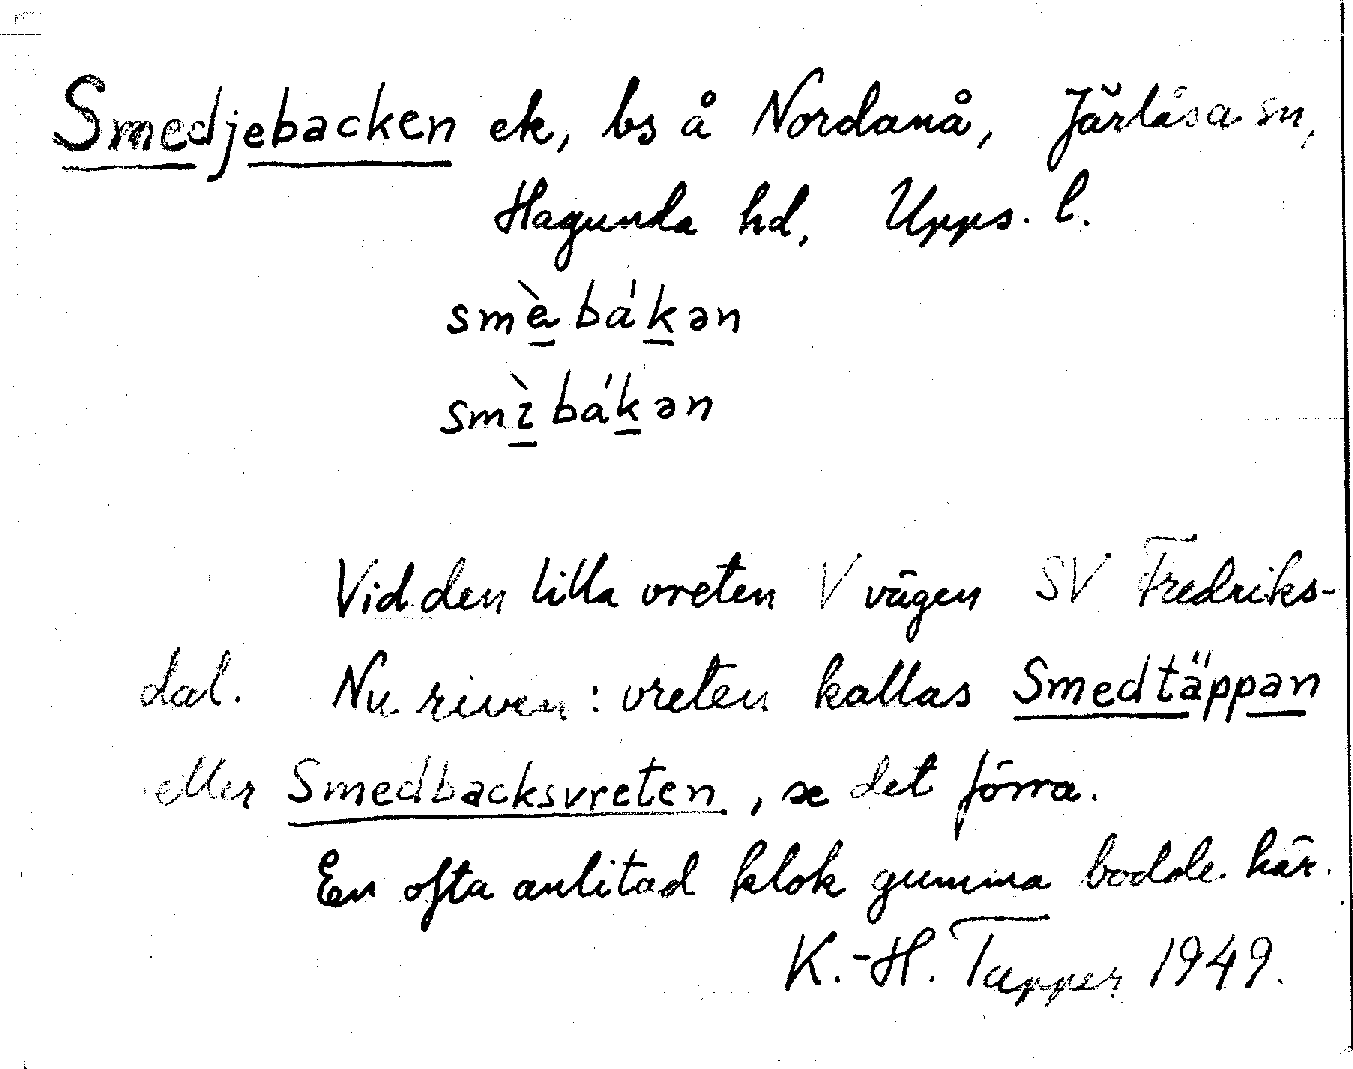 Smedjebacken ek, bs å Nordanå, Järlåsa sn,
Hagunda hd, Upps. l.
smèbákən
smìbákən
Vid den lilla vreten V vägen SV Fredriks-
dal. Nu riven: vreten kallas Smedtäppan
eller Smedbacksvreten, se det förra.
En ofta anlitad klok gumma bodde här.
K.-H. Tapper 1949.